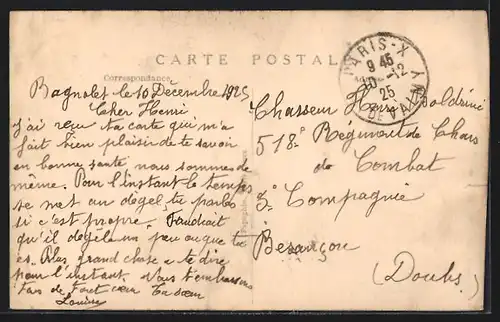 CARTE POSTALE
Correspondance
Bagnolet le 10 Décembre 1925
Cher Henri
J'ai reçu ta carte qui m'a
fait bien plaisir de te savoir
en bonne santé nous sommes de
même. Pour l'instant le temps
se met au dégel, tu parles
si c'est propre. Faudrait
qu'il dégèle un peu ou que tu
es. Plus grand chose à te dire
pour l'instant. Nous t'embrassons
tous de tout cœur Ta sœur
Louise
PARIS-X
9 45
10-12
25
R. DE VALMY
Chasseur Henri Soldini
518e Régiment de Chars
de Combat
3e Compagnie
Besançon
(Doubs)